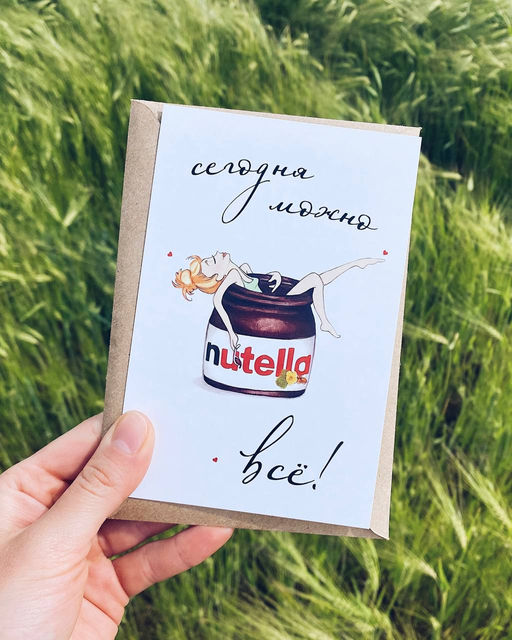 сегодня
можно
nutella
всё!